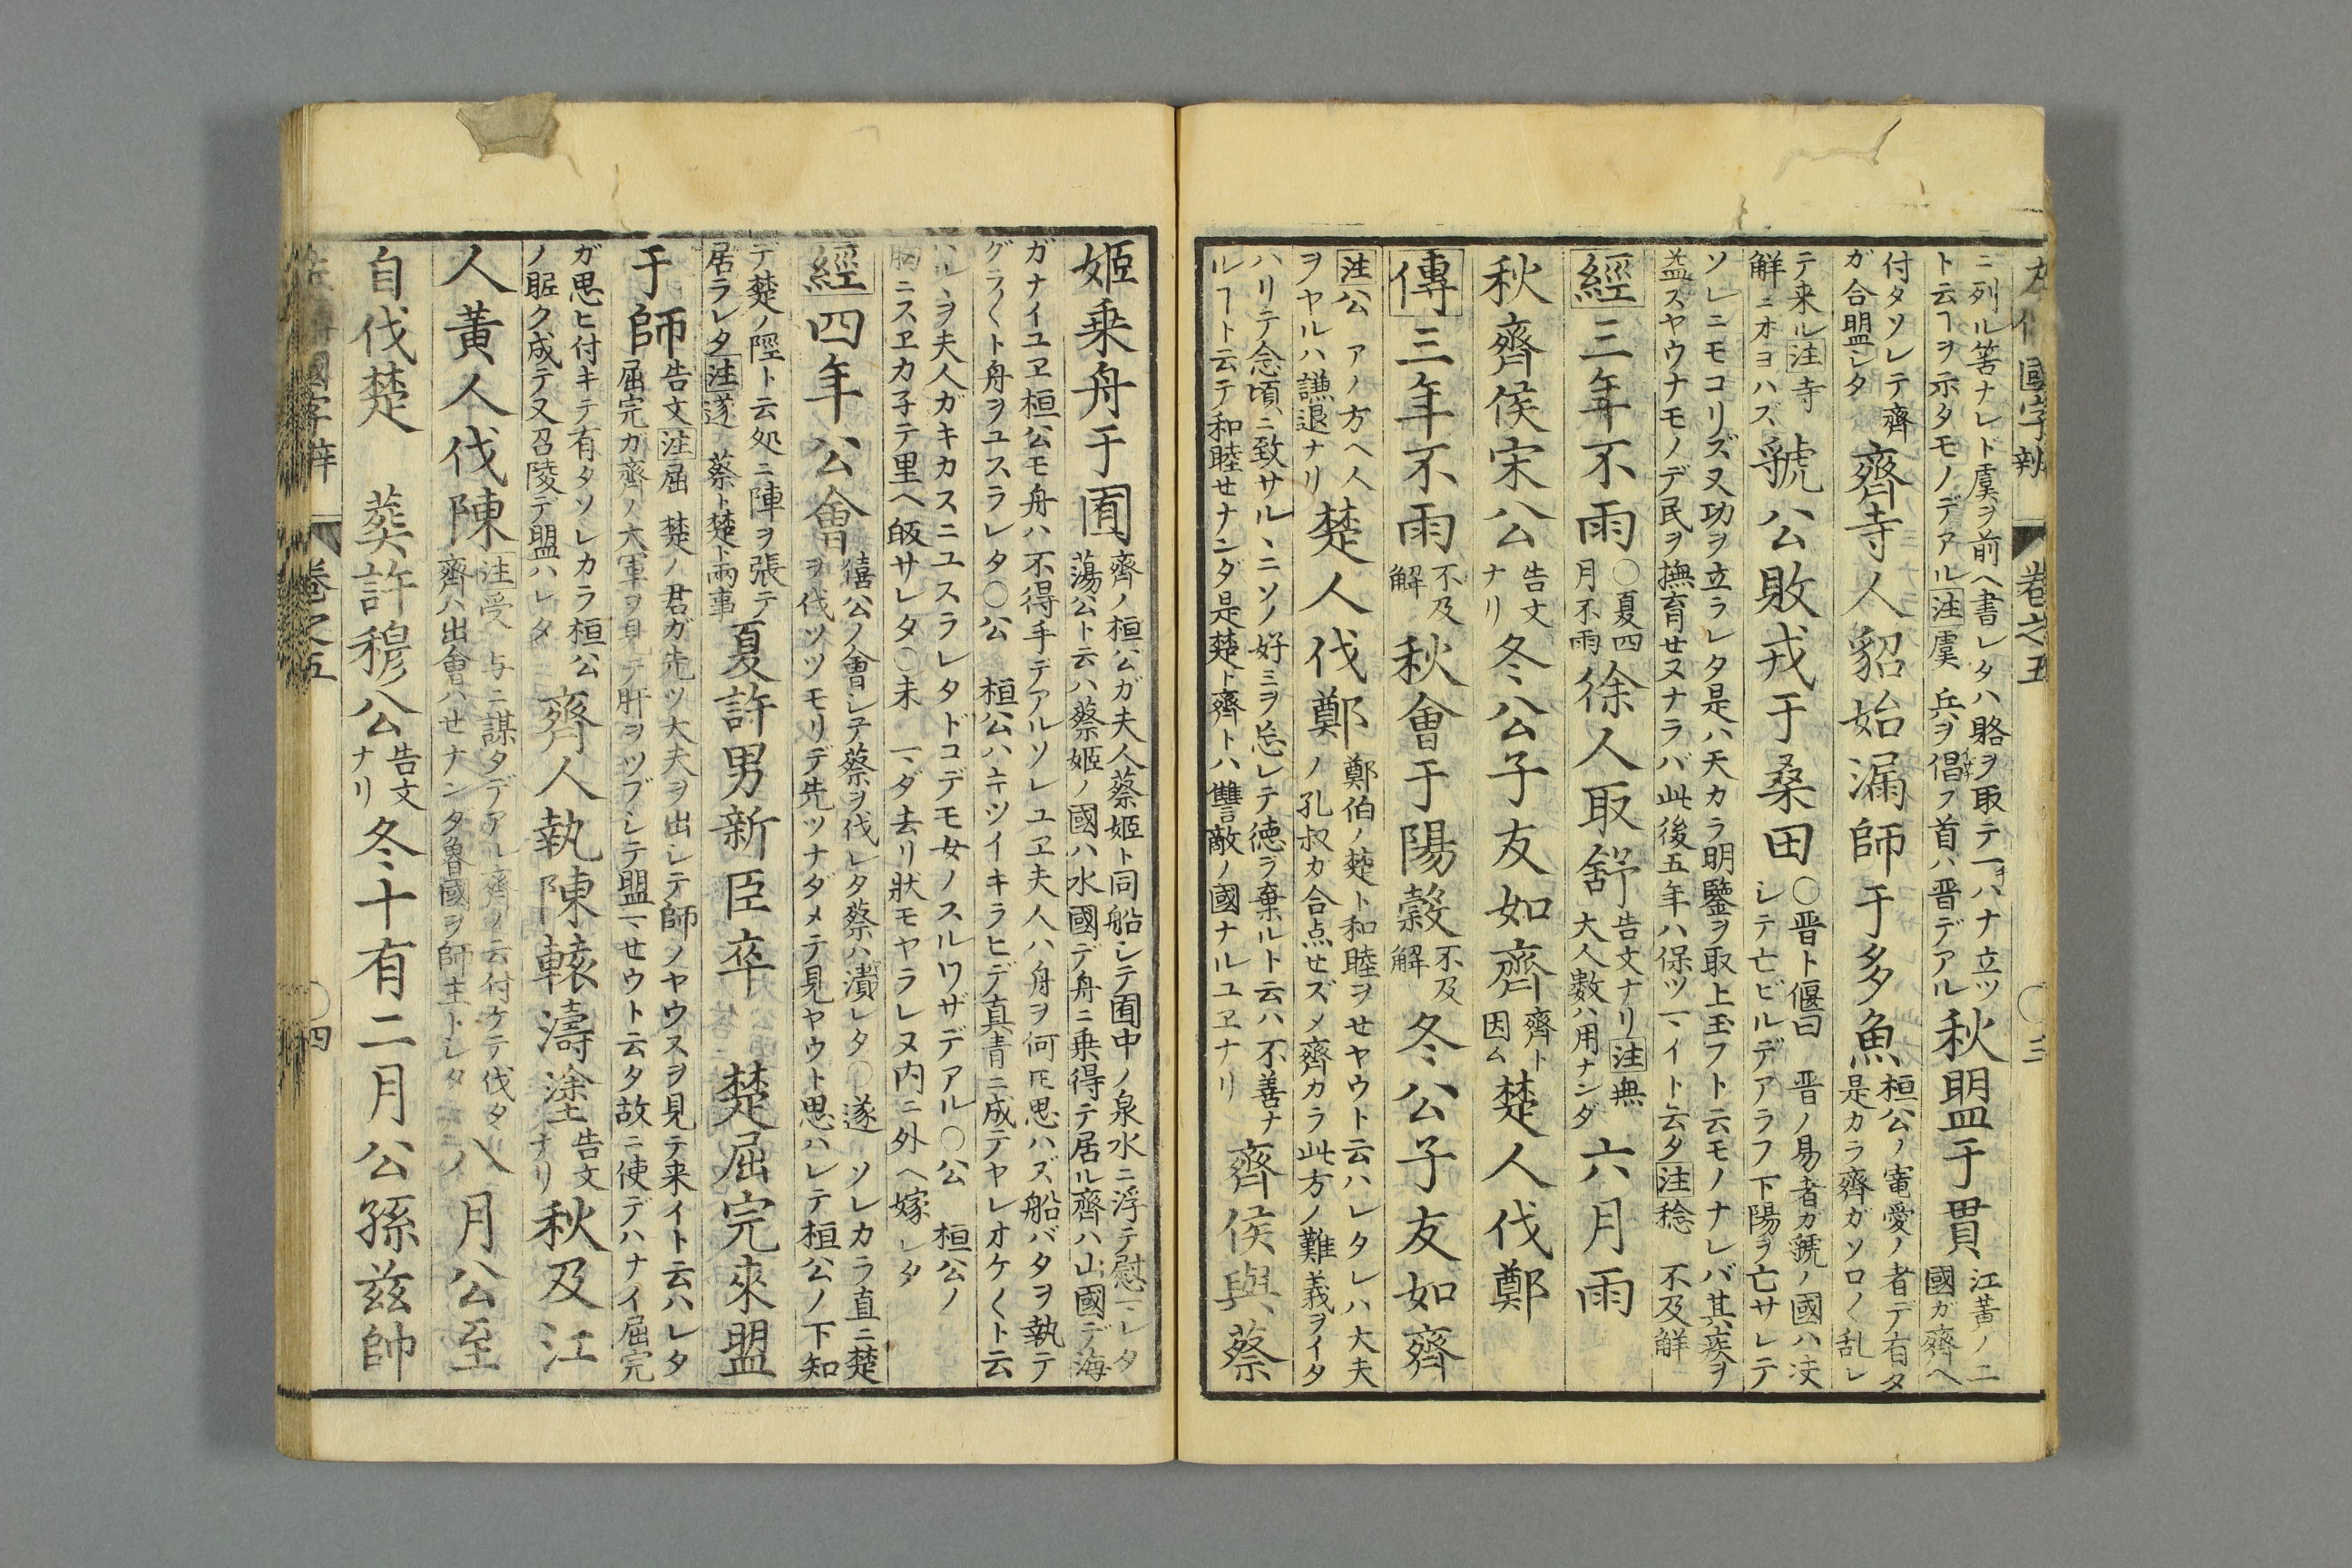 左傳國字辯 卷之五 〇三
ニ列ル筈ナレド虞ヲ前ヘ書レタハ賂ヲ取テ一ハナ立ツ
ト云ヿヲ示タモノデアル注虞 兵ヲ倡フ首ハ晋デアル
秋盟于貫
江黄ノ二
國ガ齊ヘ
付タソレテ齊
ガ合盟シタ
齊寺人貂始漏師于多魚
桓公ノ寵愛ノ者デ有タ
是カラ齊ガソロ〱乱レ
テ来ル注寺
解ニオヨハズ
虢公敗戎于桑田
〇晋ト偃曰 晋ノ易者ガ虢ノ國ハ决
シテ亡ビルデアラフ下陽ヲ亡サレテ
ソレニモコリズ又功ヲ立ラレタ是ハ天カラ明鑒ヲ取上玉フト云モノナレバ其疾ヲ
益スヤウナモノデ民ヲ撫育せヌナラバ此後五年ハ保ツマイト云タ注稔 不及解
經三年不雨
〇夏四
月不雨
徐人取舒
告文ナリ注無
大人数ハ用ナンダ
六月雨
秋齊侯宋公
告文
ナリ
冬公子友如齊
齊ト
因ム
楚人伐鄭
傳三年不雨
不及
解
秋會于陽穀
不及
解
冬公子友如齊
注公 アノ方ヘ人
ヲヤルハ謙退ナリ
楚人伐鄭
鄭伯ノ楚ト和睦ヲせヤウト云ハレタレハ大夫
ノ孔叔カ合点せズメ齊カラ此方ノ難義ヲイタ
ハリテ念頃ニ致サルヽニソノ好ミヲ忘レテ徳ヲ棄ルト云ハ不善ナ
ルヿト云テ和睦せナンダ是楚ト齊トハ讐敵ノ國ナルユヱナリ
齊侯與蔡
姫乗舟于囿
齊ノ桓公ガ夫人蔡姫ト同船シテ囿中ノ泉水ニ浮テ慰マレタ
蕩公ト云ハ蔡姫ノ國ハ水國デ舟ニ乗得テ居ル齊ハ山國デ海
ガナイユヱ桓公モ舟ハ不得手デアルソレユヱ夫人ハ舟ヲ何𪜈思ハズ船バタヲ執テ
グラ〱ト舟ヲユスラレタ〇公 桓公ハキツイキラヒデ真青ニ成テヤレオケ〱ト云
ハルヽヲ夫人ガキカスニユスラレタドコデモ女ノスルワザデアル〇公 桓公ノ
胸ニスヱカ子テ里ヘ皈サレタ〇未 マダ去リ狀モヤラレヌ内ニ外ヘ嫁シタ
經四年公會
僖公ノ會シテ蔡ヲ伐レタ蔡ハ潰レタ〇遂 ソレカラ直ニ楚
ヲ伐ツツモリデ先ツナダメテ見ヤウト思ハレテ桓公ノ下知
デ楚ノ陘ト云処ニ陣ヲ張テ
居ラレタ注遂 蔡ト楚ト両事
夏許男新臣卒
楚屈完來盟
于師
告文注屈 楚ノ君ガ先ツ大夫ヲ出シテ師ノヤウスヲ見テ来イト云ハレタ
屈完ガ齊ノ大軍ヲ見テ肝ヲツブシテ盟マせウト云タ故ニ使デハナイ屈完
ガ思ヒ付キテ有タソレカラ桓公
ノ脤ク成テ又召陵デ盟ハレタ
齊人執陳轅濤塗
告文
ナリ
秋及江
人黃人伐陳
注受 与ニ謀タデアル齊ノ云付ケテ伐タ
齊ハ出會ハせナンタ魯國ヲ師主トシタ
八月公至
自伐楚
葬許穆公
告文
ナリ
冬十有二月公孫茲帥
卷之五 〇四